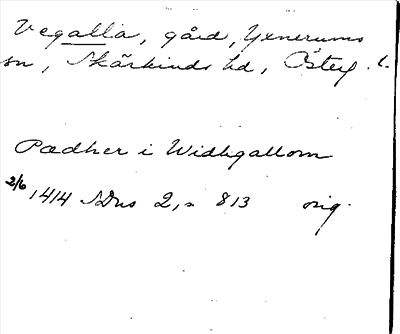 Vegalla, gård, Yxnerums
sn, Skärkinds hd, Österg. l.
Pædher i Widhgallom
2/6 1414 SDns 2, s 813 orig.